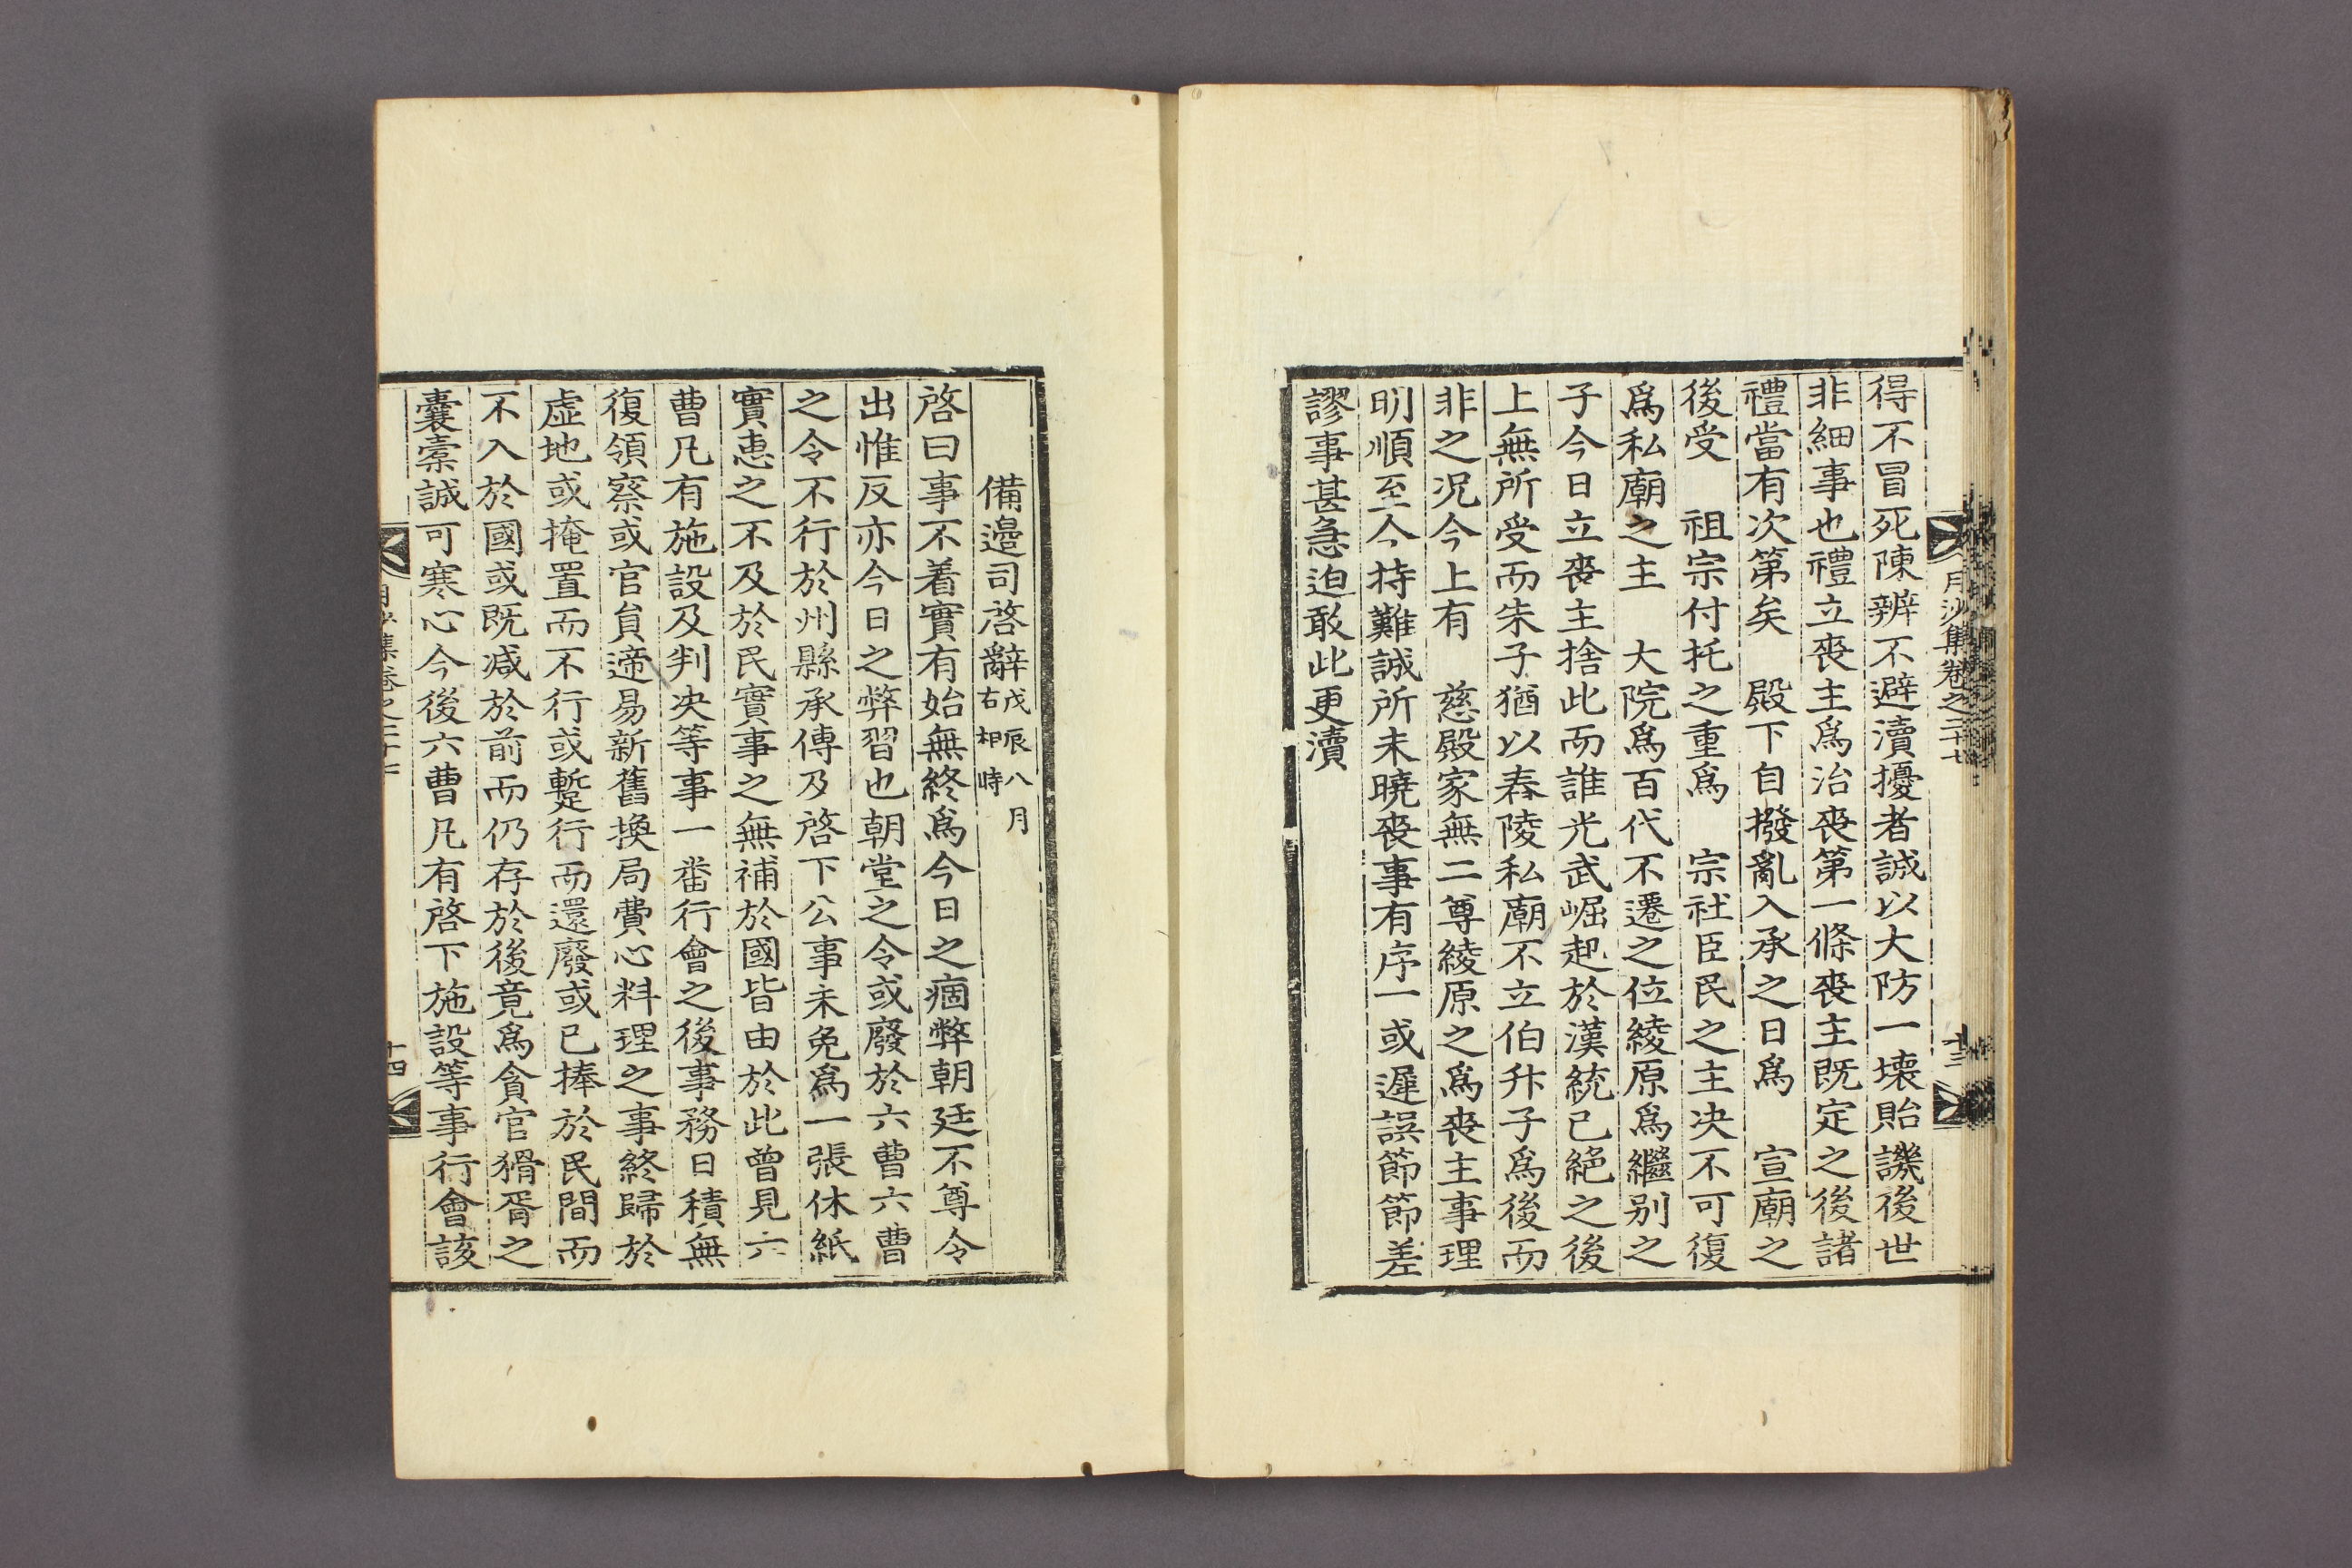 月沙集卷之二十七
十三
得不冒死陳辨不避瀆擾者誠以大防一壞貽譏後世
非細事也禮立喪主爲治喪第一條喪主既定之後諸
禮當有次第矣 殿下自撥亂入承之日爲 宣廟之
後受 祖宗付托之重爲 宗社臣民之主决不可復
爲私廟之主 大院爲百代不遷之位綾原爲繼别之
子今日立喪主捨此而誰光武崛起於漢統已絶之後
上無所受而朱子猶以舂陵私廟不立伯升子爲後而
非之况今上有 慈殿家無二尊綾原之爲喪主事理
明順至今持難誠所未曉喪事有序一或遲誤節節差
謬事甚急迫敢此更瀆
備邊司啓辭戊辰八月
右相時
啓曰事不着實有始無終爲今日之痼弊朝廷不尊令
出惟反亦今日之弊習也朝堂之令或廢於六曹六曹
之令不行於州縣承傳及啓下公事未免爲一張休紙
實惠之不及於民實事之無補於國皆由於此曾見六
曹凡有施設及判决等事一番行會之後事務日積無
復領察或官貟遞易新舊換局費心料理之事終歸於
虛地或掩置而不行或蹔行而還廢或已捧於民間而
不入於國或既减於前而仍存於後竟爲貪官猾胥之
囊橐誠可寒心今後六曹凡有啓下施設等事行會該
月沙集卷之二十七
十四